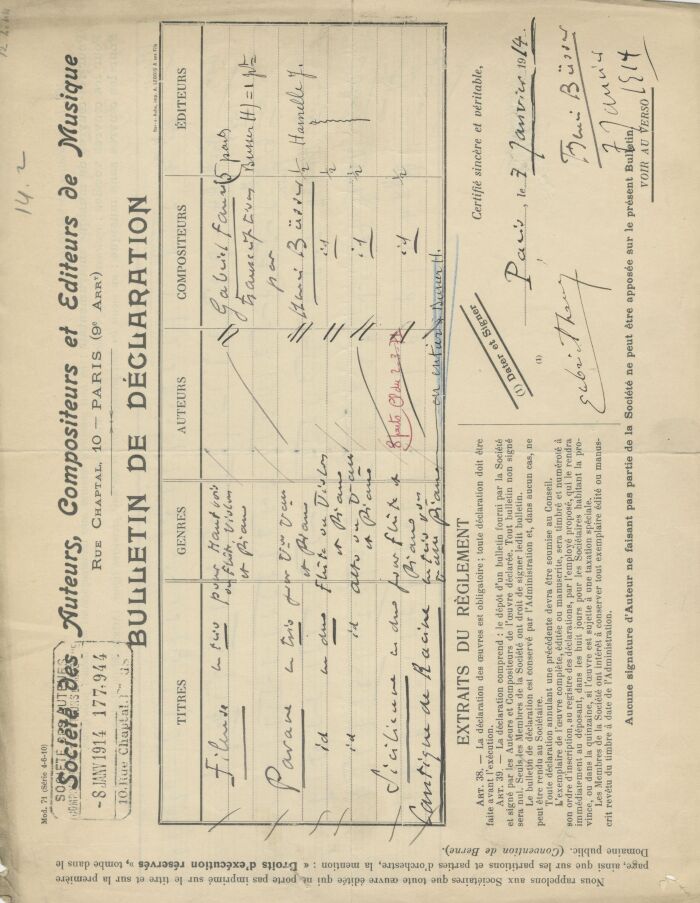 14.2
Mod. 71 (Série 4-6-10)
Société des Auteurs, Compositeurs et Editeurs de Musique
RUE CHAPTAL, 10 — PARIS (9e ARRt)
SOCIÉTÉ DES AUTEURS
-8 JANV 1914 177.944
10, Rue Chaptal
BULLETIN DE DÉCLARATION
TITRES GENRES AUTEURS COMPOSITEURS ÉDITEURS
Fileuse en trio pour Hautbois Gabriel Fauré
ou Flûte, Violon transcriptions Busser H) =
et Piano par
Pavane en trio pour Henri Büsser ½ Hamelle J.
et Piano
id en duo Flûte ou Violon id ½
et Piano
id id alto ou
et Piano id ½
Sicilienne en duo pour Flûte et id ½
Piano
Cantique de Racine en trio
Piano
Busser H.
EXTRAITS DU RÈGLEMENT
ART. 38. — La déclaration des œuvres est obligatoire ; toute déclaration doit être
faite avant l'exécution.
ART. 39. — La déclaration comprend : le dépôt d'un bulletin fourni par la Société
et signé par les Auteurs et Compositeurs de l'œuvre déclarée. Tout bulletin non signé
sera nul. Seuls, les Membres de la Société ont droit de signer ledit bulletin.
Le bulletin de déclaration est conservé par l'Administration et, dans aucun cas, ne
peut être rendu au Sociétaire.
Toute déclaration annulant une précédente devra être soumise au Conseil.
L'exemplaire de l'œuvre complète, éditée ou manuscrite, sera timbré et numéroté à
son ordre d'inscription, au registre des déclarations, par l'employé préposé, qui le rendra
immédiatement au déposant, dans les huit jours pour les Sociétaires habitant la pro-
vince, ou dans la quinzaine, si l'œuvre est sujette à une taxation spéciale.
Les Membres de la Société ont intérêt à conserver tout exemplaire édité ou manus-
crit revêtu du timbre à date de l'Administration.
Certifié sincère et véritable,
Paris, le 7 Janvier 1914
(1) Dater et Signer
(1)
Gabriel Fauré
Henri Büsser
7 Janvier
1914
Aucune signature d'Auteur ne faisant pas partie de la Société ne peut être apposée sur le présent Bulletin.
VOIR AU VERSO
Nous rappelons aux Sociétaires que toute œuvre éditée qui ne porte pas imprimé sur le titre et sur la première
page, ainsi que sur les partitions et parties d'orchestre, la mention : « Droits d'exécution réservés », tombe dans le
Domaine public. (Convention de Berne).